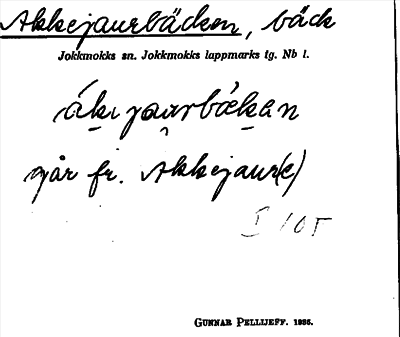 Akkejaurbäcken, bäck
Jokkmokks sn. Jokkmokks lappmarks tg. Nb l.
áki̱ jau̯rbáḵan
går fr. Akkejaur(e)
I 105
GUNNAR PELLIJEFF. 1935.